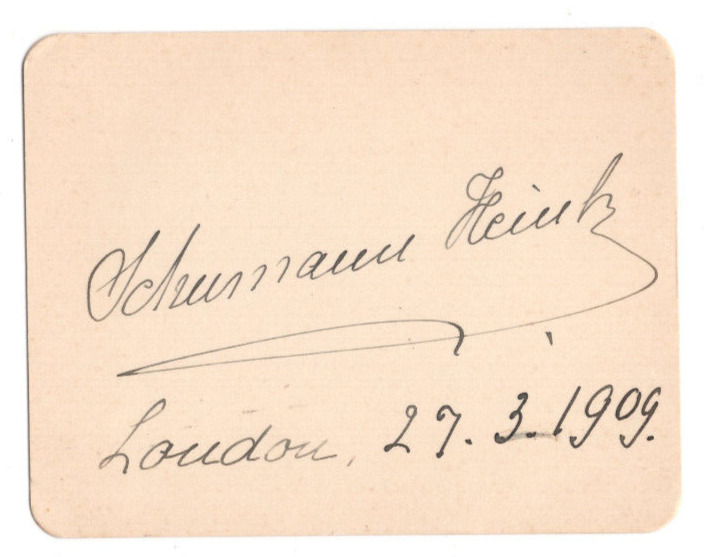 Schumann Heink
London, 27. 3. 1909.